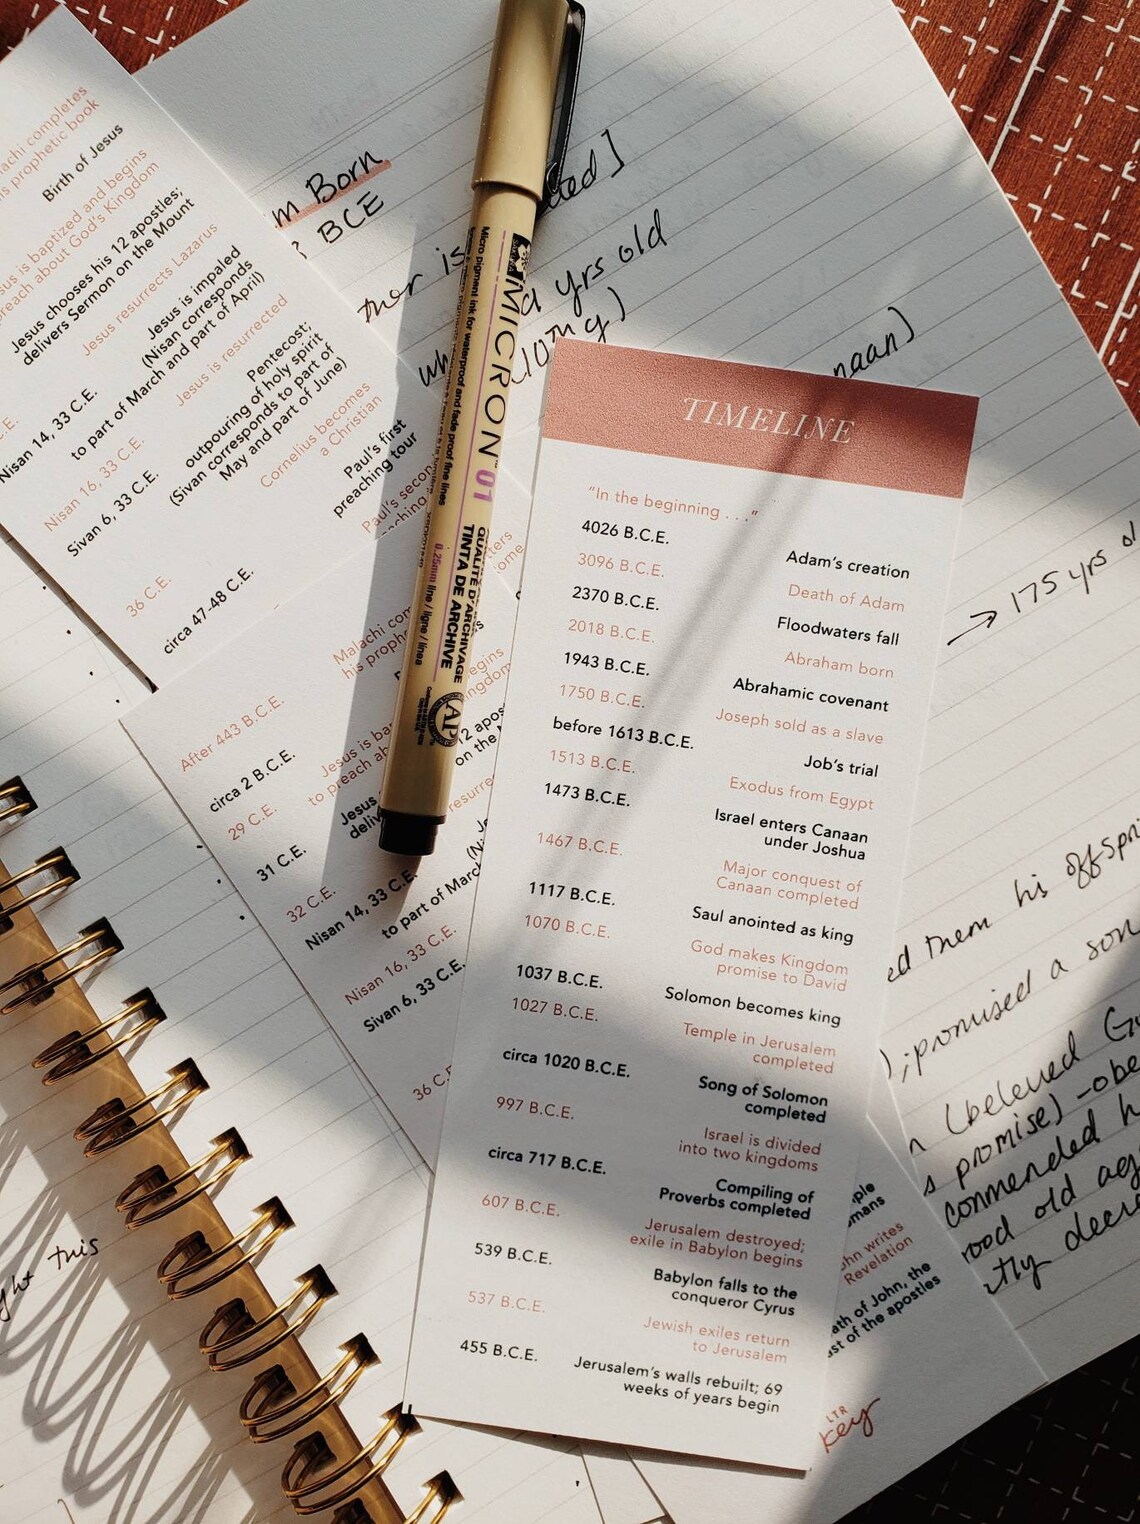 TIMELINE
"In the beginning . . ."
4026 B.C.E. Adam's creation
3096 B.C.E. Death of Adam
2370 B.C.E. Floodwaters fall
2018 B.C.E. Abraham born
1943 B.C.E. Abrahamic covenant
1750 B.C.E. Joseph sold as a slave
before 1613 B.C.E. Job's trial
1513 B.C.E. Exodus from Egypt
1473 B.C.E. Israel enters Canaan
under Joshua
1467 B.C.E. Major conquest of
Canaan completed
1117 B.C.E. Saul anointed as king
1070 B.C.E. God makes Kingdom
promise to David
1037 B.C.E. Solomon becomes king
1027 B.C.E. Temple in Jerusalem
completed
circa 1020 B.C.E. Song of Solomon
completed
997 B.C.E. Israel is divided
into two kingdoms
circa 717 B.C.E. Compiling of
Proverbs completed
607 B.C.E. Jerusalem destroyed;
exile in Babylon begins
539 B.C.E. Babylon falls to the
conqueror Cyrus
537 B.C.E. Jewish exiles return
to Jerusalem
455 B.C.E. Jerusalem's walls rebuilt; 69
weeks of years begin
achi completes
s prophetic book
Birth of Jesus
sus is baptized and begins
preach about God's Kingdom
Jesus chooses his 12 apostles;
delivers Sermon on the Mount
Jesus resurrects Lazarus
Nisan 14, 33 C.E. Jesus is impaled
(Nisan corresponds
to part of March and part of April)
Nisan 16, 33 C.E. Jesus is resurrected
Sivan 6, 33 C.E. Pentecost;
outpouring of holy spirit
(Sivan corresponds to part of
May and part of June)
36 C.E. Cornelius becomes
a Christian
circa 47-48 C.E. Paul's first
preaching tour
Paul's secon
After 443 B.C.E. Malachi com
his proph
circa 2 B.C.E.
29 C.E. Jesus is ba
to preach ab
31 C.E. Jesus
deliv
12 apos
on the
32 C.E.
Nisan 14, 33 C.E.
to part of Marc
Nisan 16, 33 C.E.
Sivan 6, 33 C.E.
36 C.E.
MICRON™ 01
Micro pigment ink for waterproof and fade proof fine lines
0.25mm line / ligne / línea
QUALITÉ D'ARCHIVAGE
TINTA DE ARCHIVE
AP
m Born
BCE
yrs old
long)
naan)
→ 175 yrs ol
ed them his offspri
; promised a son
(beloved G
s promise) - obe
commended h
ood old ag
tly decre
ght this
ple
mans
hn writes
Revelation
ath of John, the
ast of the apostles
LTR
key